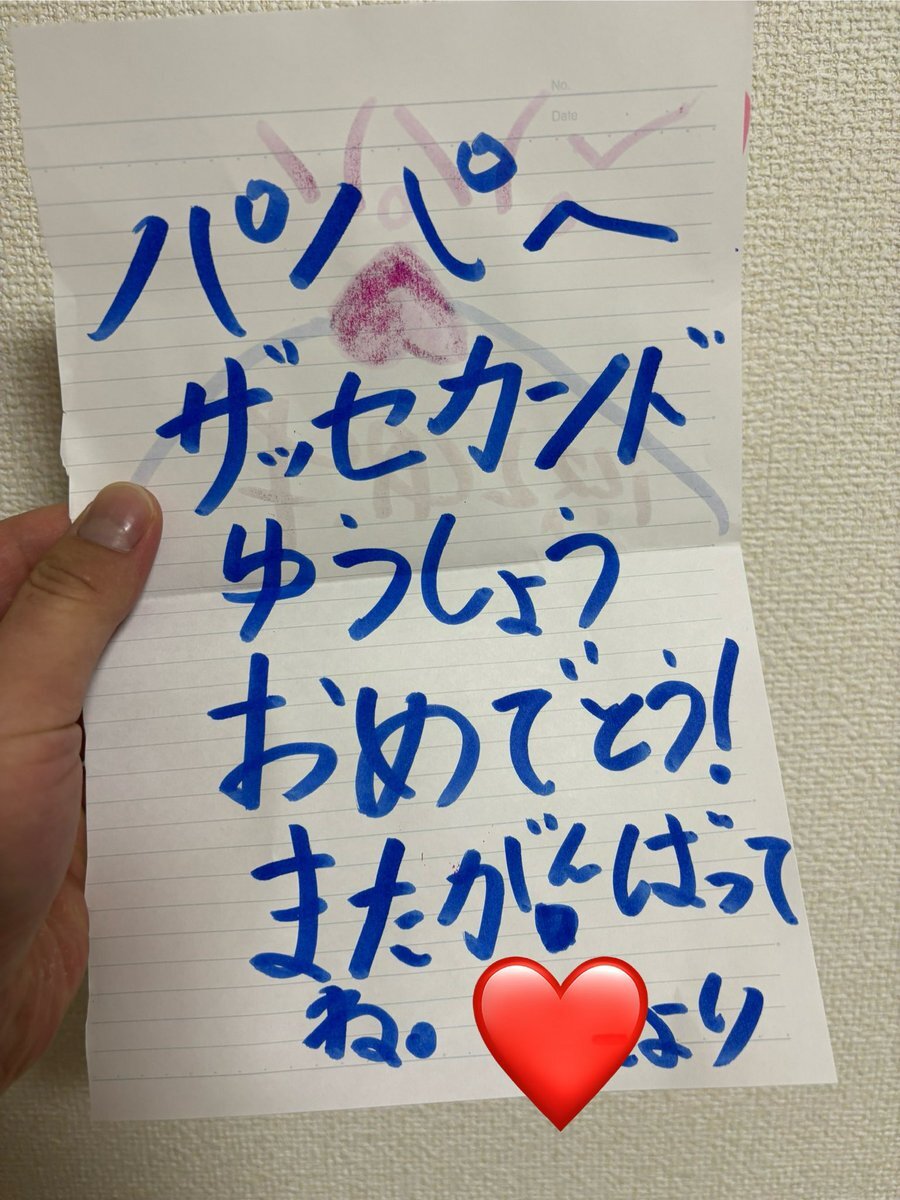 No.
Date
パパへ
ザッセカンド
ゆうしょう
おめでとう!
またがんばって
ね。 より